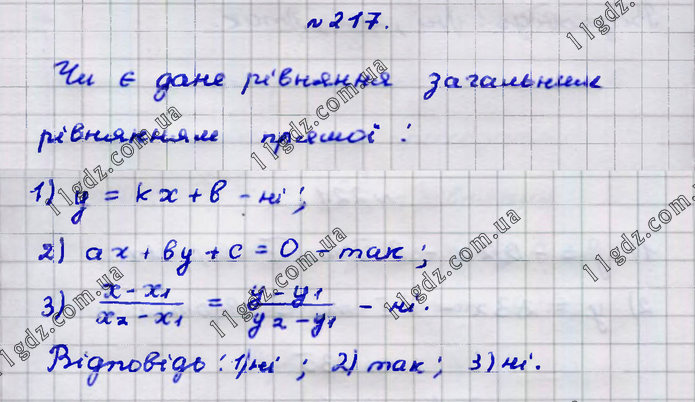 №217.
Чи є дане рівняння загальним
рівнянням прямої:
1) y = kx + b - ні;
2) ax + by + c = 0 - так;
3) x - x1 / x2 - x1 = y - y1 / y2 - y1 - ні.
Відповідь: 1) ні; 2) так; 3) ні.
11gdz.com.ua
11gdz.com.ua
11gdz.com.ua
11gdz.com.ua
11gdz.com.ua
11gdz.com.ua
11gdz.com.ua
11gdz.com.ua